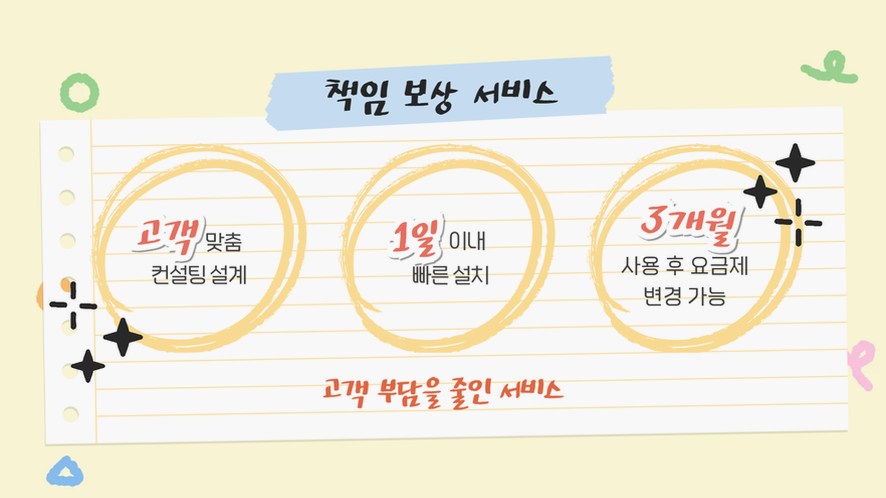 책임 보상 서비스
고객 맞춤
컨설팅 설계
1일 이내
빠른 설치
3개월
사용 후 요금제
변경 가능
고객 부담을 줄인 서비스